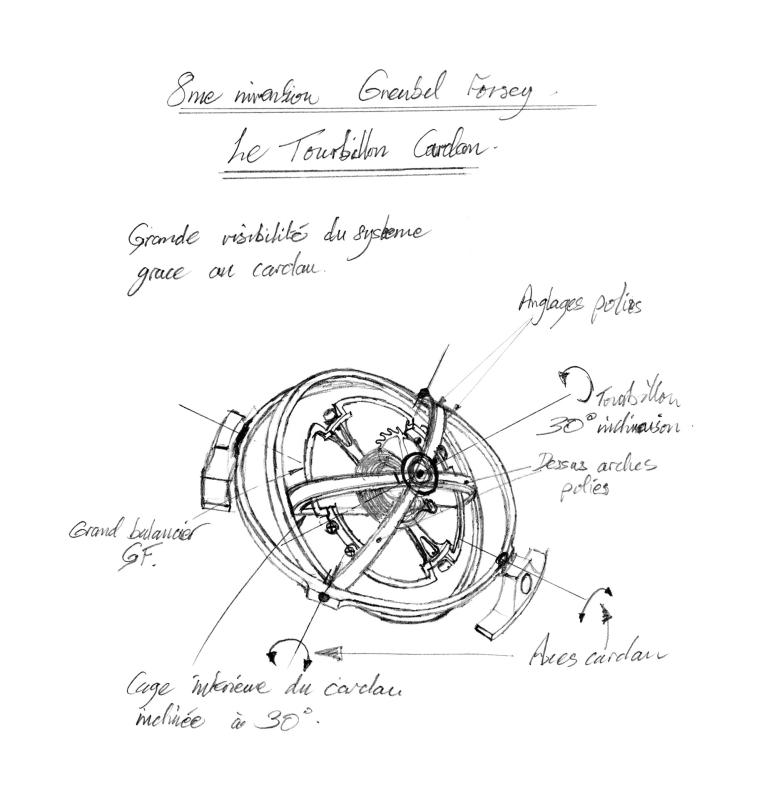 8me invension Greubel Forsey.
Le Tourbillon Cardan.
Grande visibilité du systeme
grace au cardan.
Anglages polies
Tourbillon
30° inclinaison.
Dessus arches
polies
Grand balancier
GF.
Axes cardan
Cage interieure du cardan
inclinée à 30°.